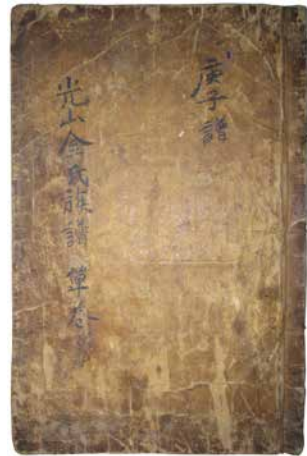 庚子譜
光山金氏族譜 單卷